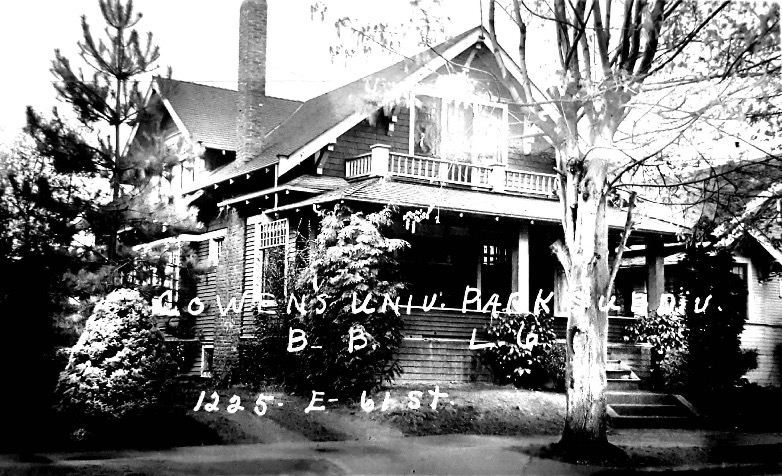 COWEN'S UNIV. PARK SUBDIV.
B- B. L. 6
1225- E- 61 ST.